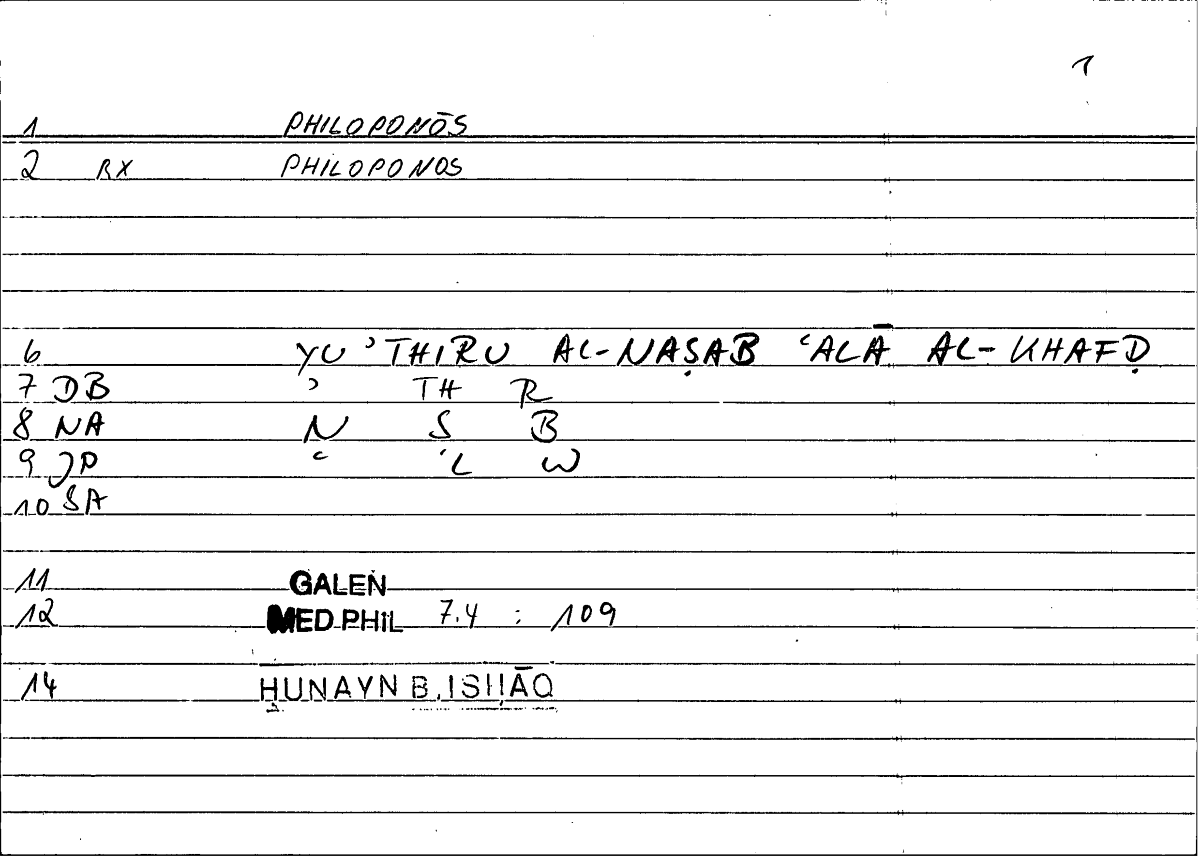 1
1 PHILOPONŌS
2 RX PHILOPONOS
6 YU ʾTHIRU AL-NAṢAB ʿALĀ AL-KHAFḌ
7 DB ʾ TH R
8 NA N S B
9 JP ʿ ʿL W
10 SA
11 GALEN
12 MED PHIL 7.4 : 109
14 ḤUNAYN B. ISḤĀQ